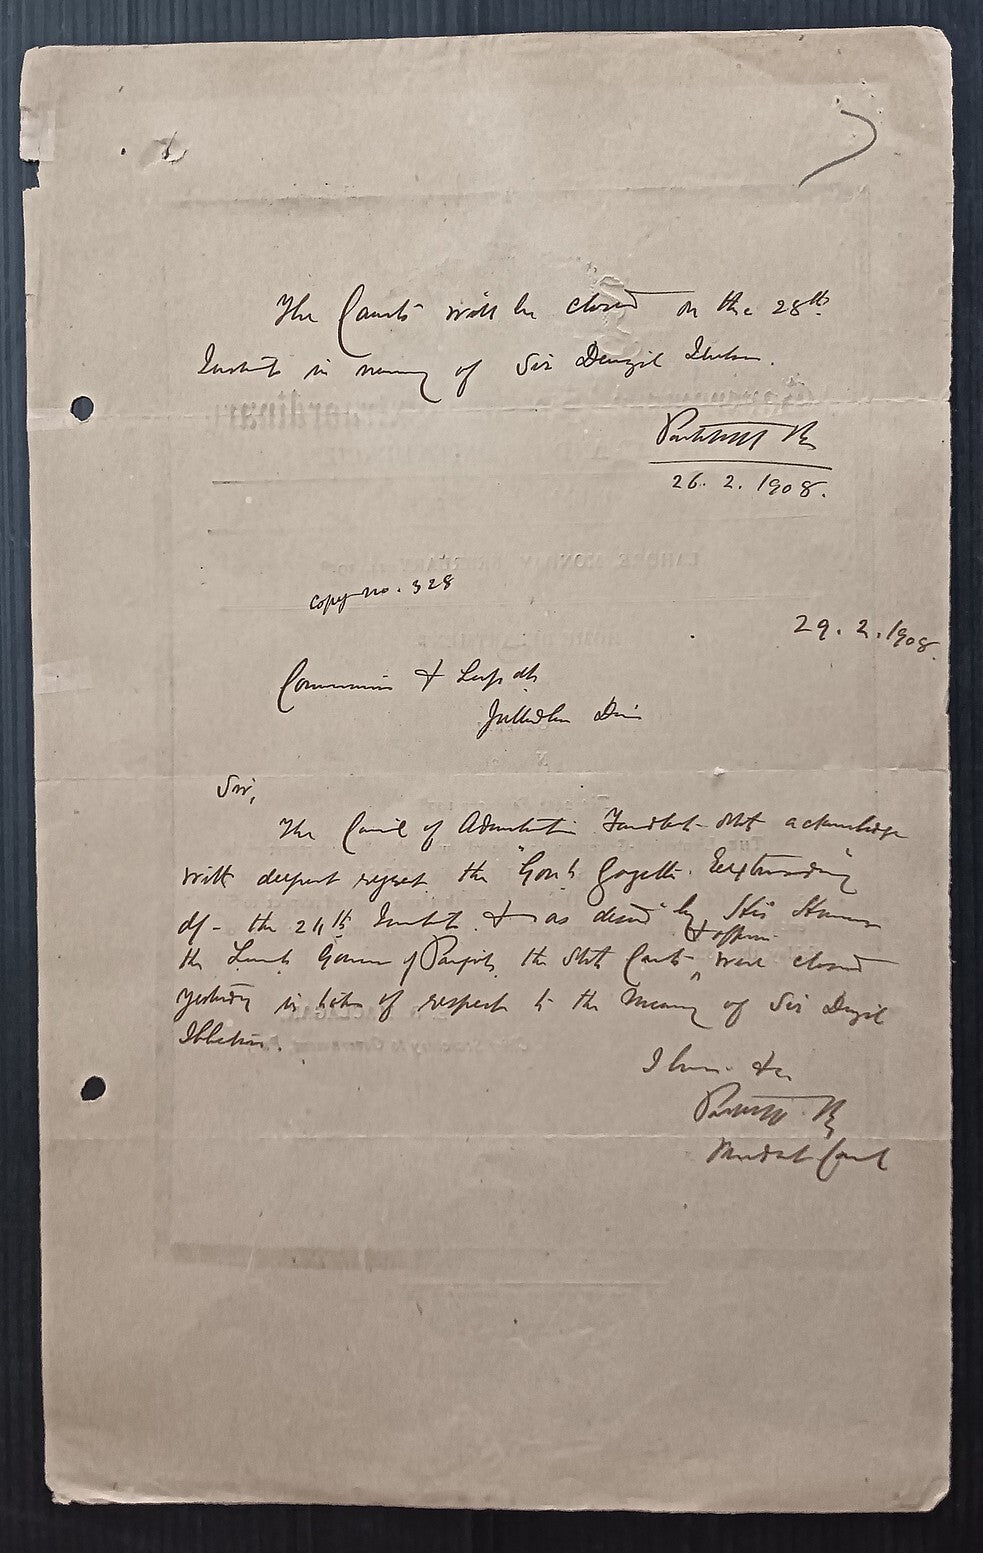 The Courts will be closed on the 28th
Instant in memory of Sir Denzil Ibbetson.
26. 2. 1908.
copy no. 328
29. 2. 1908.
Commissioner & Supdt
Jullundur Divn
Sir,
The Council of Administration Faridkot State acknowledge
with deepest regret the "Govt Gazette Extraordinary"
of the 24th Instant & as desired by His Honour
& offices
the Lieut Governor of Panjab, the State Courts were closed
yesterday in token of respect to the Memory of Sir Denzil
Ibbetson.
I have &c
LAHORE MONDAY FEBRUARY